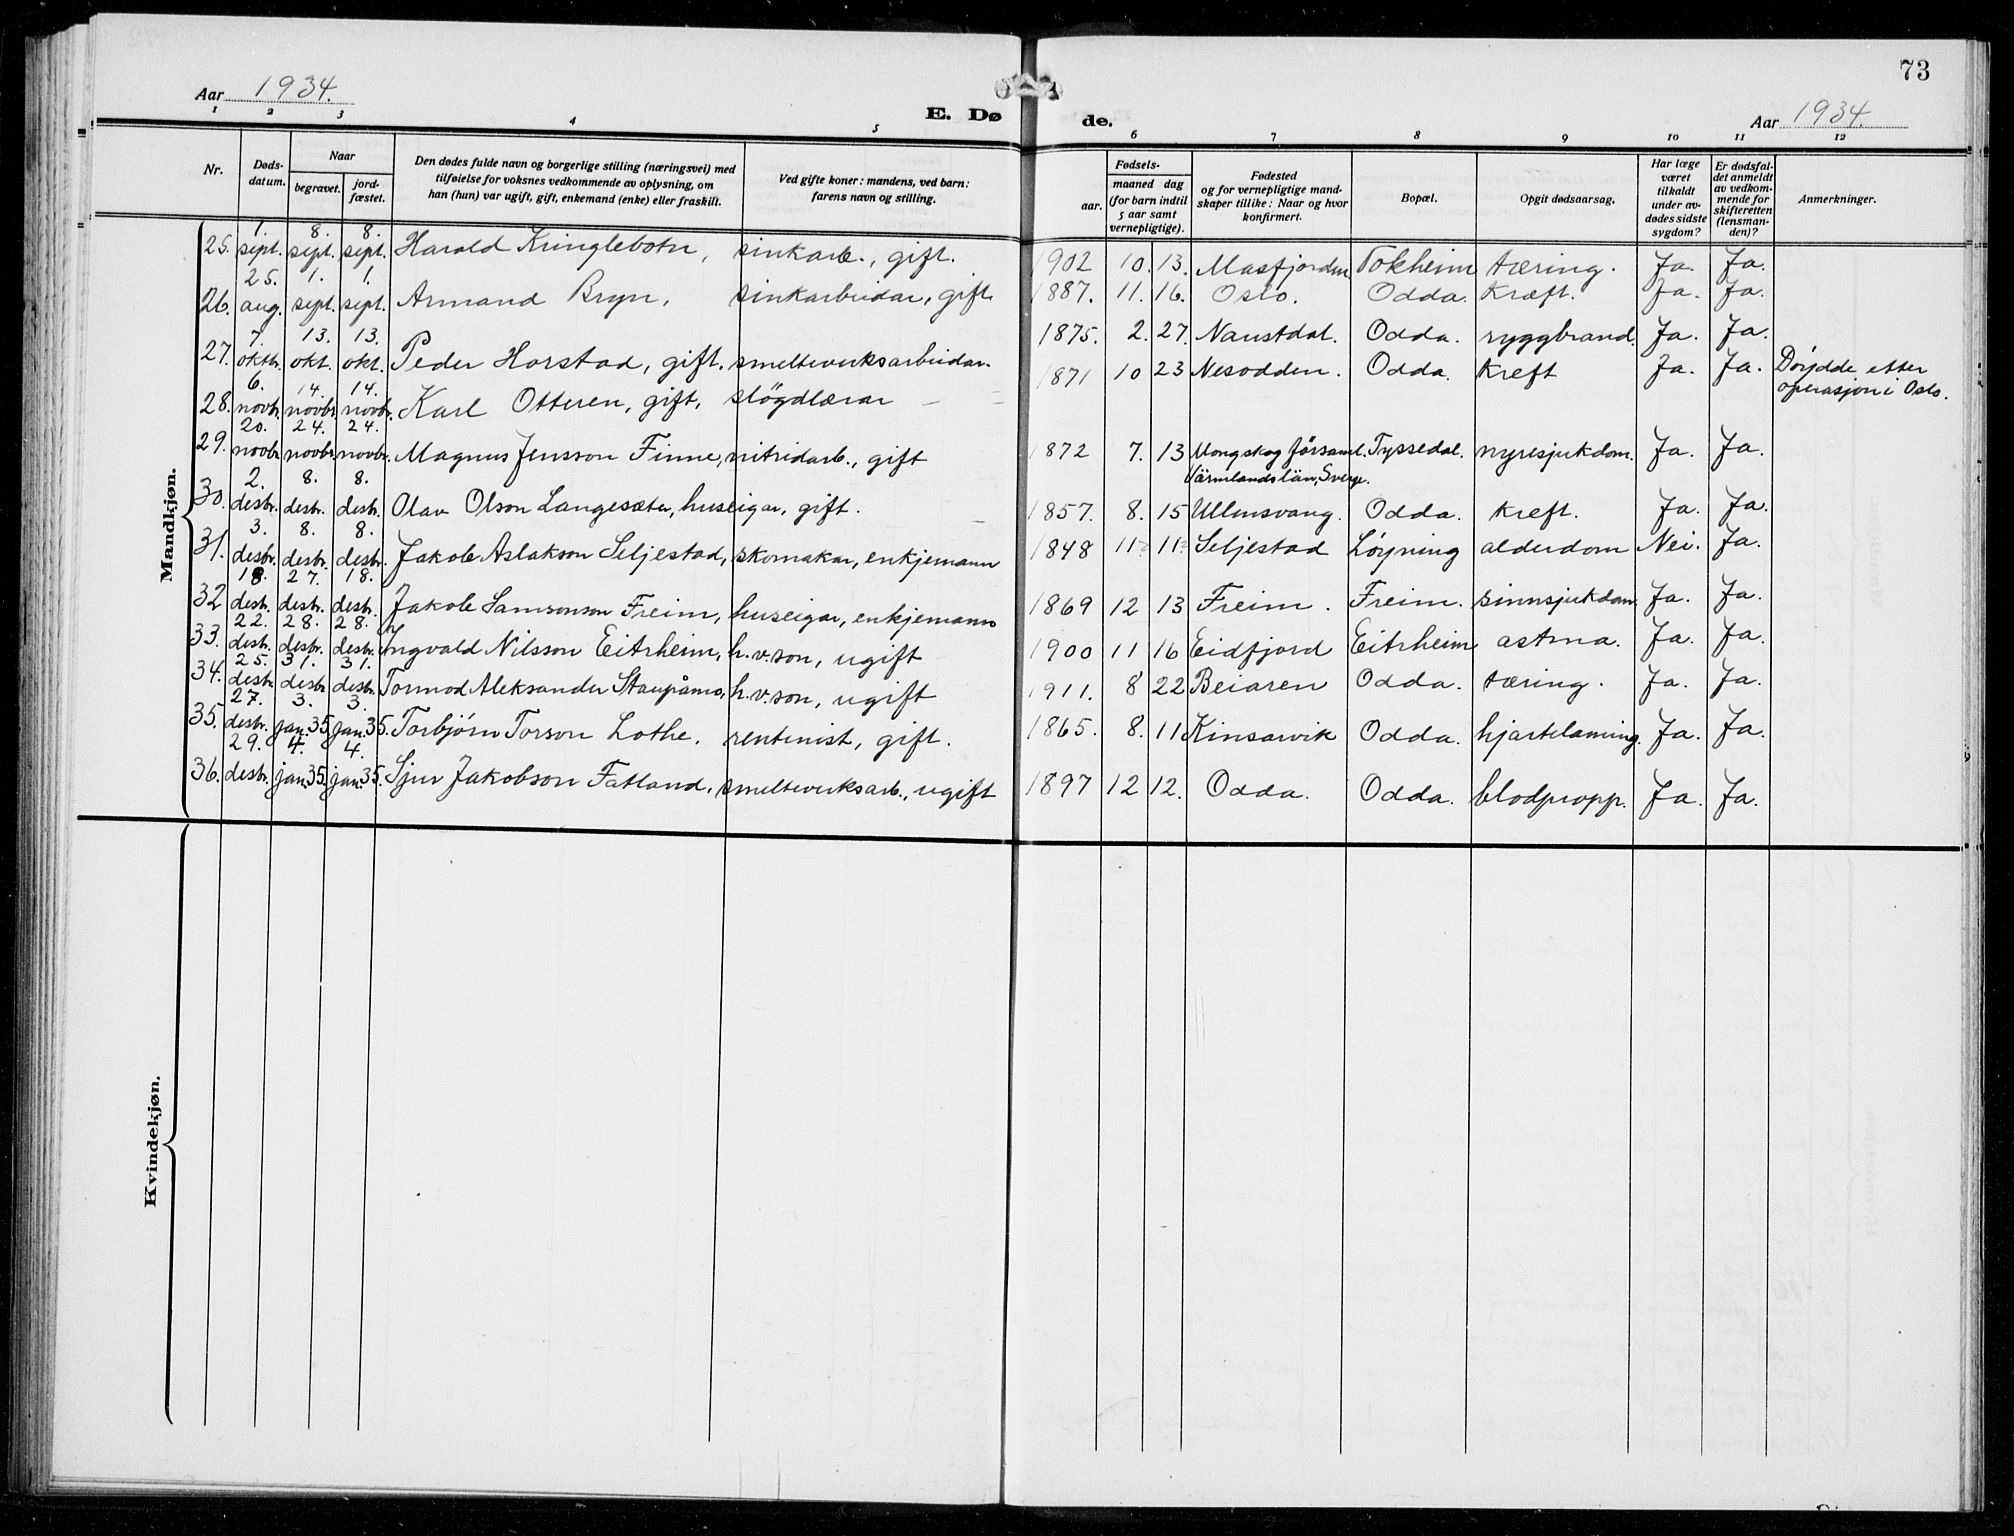 73
Aar 1934.
E. Dø de.
Aar 1934.
1 2 3 4 5 6 7 8 9 10 11 12
Nr.
Døds-
datum.
Naar
begravet.
jord-
fæstet.
Den dødes fulde navn og borgerlige stilling (næringsvei) med
tilføielse for voksnes vedkommende av oplysning, om
han (hun) var ugift, gift, enkemand (enke) eller fraskilt.
Ved gifte koner: mandens, ved barn:
farens navn og stilling.
Fødsels-
aar.
maaned dag
(for barn indtil
5 aar samt
vernepligtige).
Fødested
og for vernepligtige mand-
skaper tillike: Naar og hvor
konfirmert.
Bopæl.
Opgit dødsaarsag.
Har læge
været
tilkaldt
under av-
dødes sidste
sygdom?
Er dødsfal-
det anmeldt
av vedkom-
mende for
skifteretten
(lensman-
den)?
Anmerkninger.
Mandkjøn.
25. 1. sept. 8. sept. 8. sept. Harald Kringlebotn, sinkarb., gift. 1902 10. 13. Masfjorden Tokheim tæring. Ja. Ja.
26. 25. aug. 1. sept. 1. sept. Armand Bryn, sinkarbeidar, gift. 1887. 11. 16. Oslo. Odda. Kræft. Ja. Ja.
27. 7. oktbr. 13. okt. 13. okt. Peder Horstad, gift. smelteverksarbeidar. 1875. 2. 27. Naustdal. Odda. ryggbrand. Ja. Ja.
28. 6. novbr. 14. novbr. 14. novbr. Karl Otteren, gift, slögdlærar 1871 10 23 Nesodden. Odda. Kreft Ja. Ja. Döydde etter
operasjon i Oslo.
29. 20. novbr. 24. novbr. 24. novbr. Magnus Jensson Finne, nitridarb., gift 1872 7. 13 Mongskog församl. Tyssedal. nyresjukdom. Ja. Ja.
Värmlands län, Sverge.
30. 2. desbr. 8. desbr. 8. desbr. Olav Olson Langesæter, huseigar, gift. 1857. 8. 15 Ullensvang. Odda. kreft. Ja. Ja.
31. 3. desbr. 8. desbr. 8. desbr. Jakob Aslakson Seljestad, skomakar, enkjemann 1848 11? 11? Seljestad Löyning alderdom Nei. Ja.
32 18. desbr. 27. desbr. 18. desbr. Jakob Samsonson Freim, huseigar, enkjemann 1869 12 13 Freim. Freim. sinnsjukdom. Ja. Ja.
33. 22. desbr. 28. desbr. 28. desbr. Ingvald Nilsson Eitrheim, h.v.son, ugift 1900 11 16 Eidfjord Eitrheim astma. Ja. Ja.
34. 25. desbr. 31. desbr. 31. desbr. Tormod Aleksander Staupåmo, h.v.son, ugift 1911. 8 22 Beiaren Odda. tæring. Ja. Ja.
35. 27. desbr. 3. jan. 35 3. jan. 35. Torbjörn Torson Lothe. rentenist, gift. 1865. 8. 11 Kinsarvik Odda. hjartelaming. Ja. Ja.
36. 29. desbr. 4. jan. 35 4. jan. 35. Sjur Jakobson Fatland, smelteverksarb., ugift 1897 12 12. Odda. Odda. blodpropp. Ja. Ja.
Kvindekjøn.